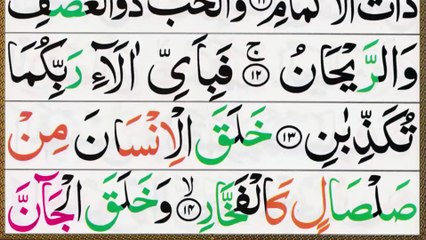 ذَاتُ الْاَكْمَامِ ۝۱۱ وَالْحَبُّ ذُو الْعَصْفِ
وَالرَّيْحَانُ ۝۱۲ۚ فَبِاَيِّ اٰلَآءِ رَبِّكُمَا
تُكَذِّبٰنِ ۝۱۳ خَلَقَ الْاِنْسَانَ مِنْ
صَلْصَالٍ كَالْفَخَّارِ ۝۱۴ۙ وَخَلَقَ الْجَآنَّ